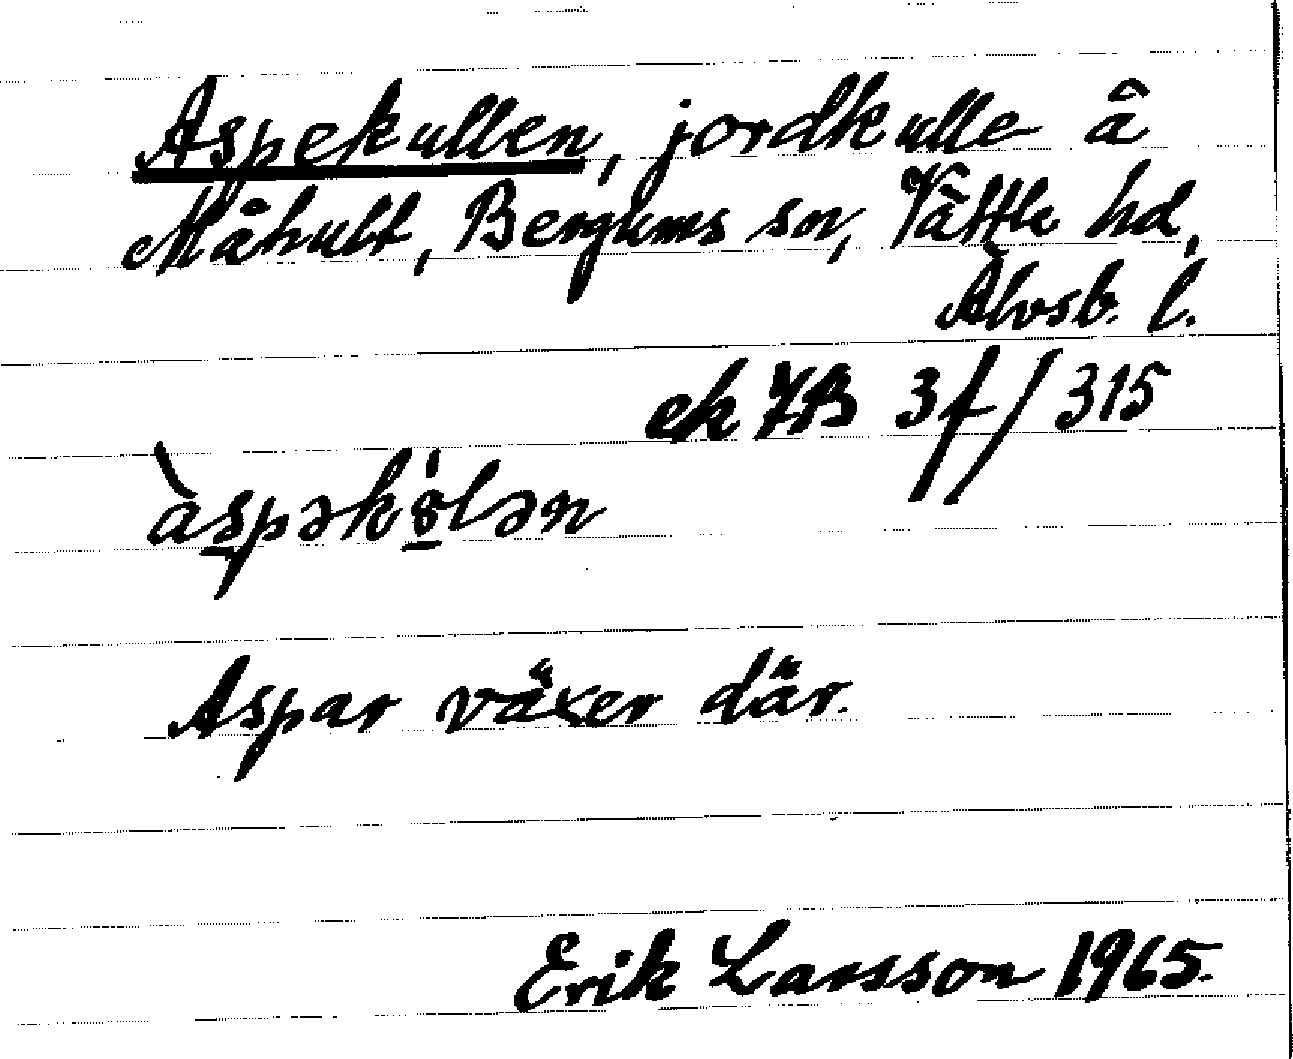 Aspekullen, jordkulle å
Måhult, Bergums sn, Vättle hd,
Älvsb. l.
ek 7B 3f/315
àspəkȯ̱lən
Aspar växer där.
Erik Larsson 1965.